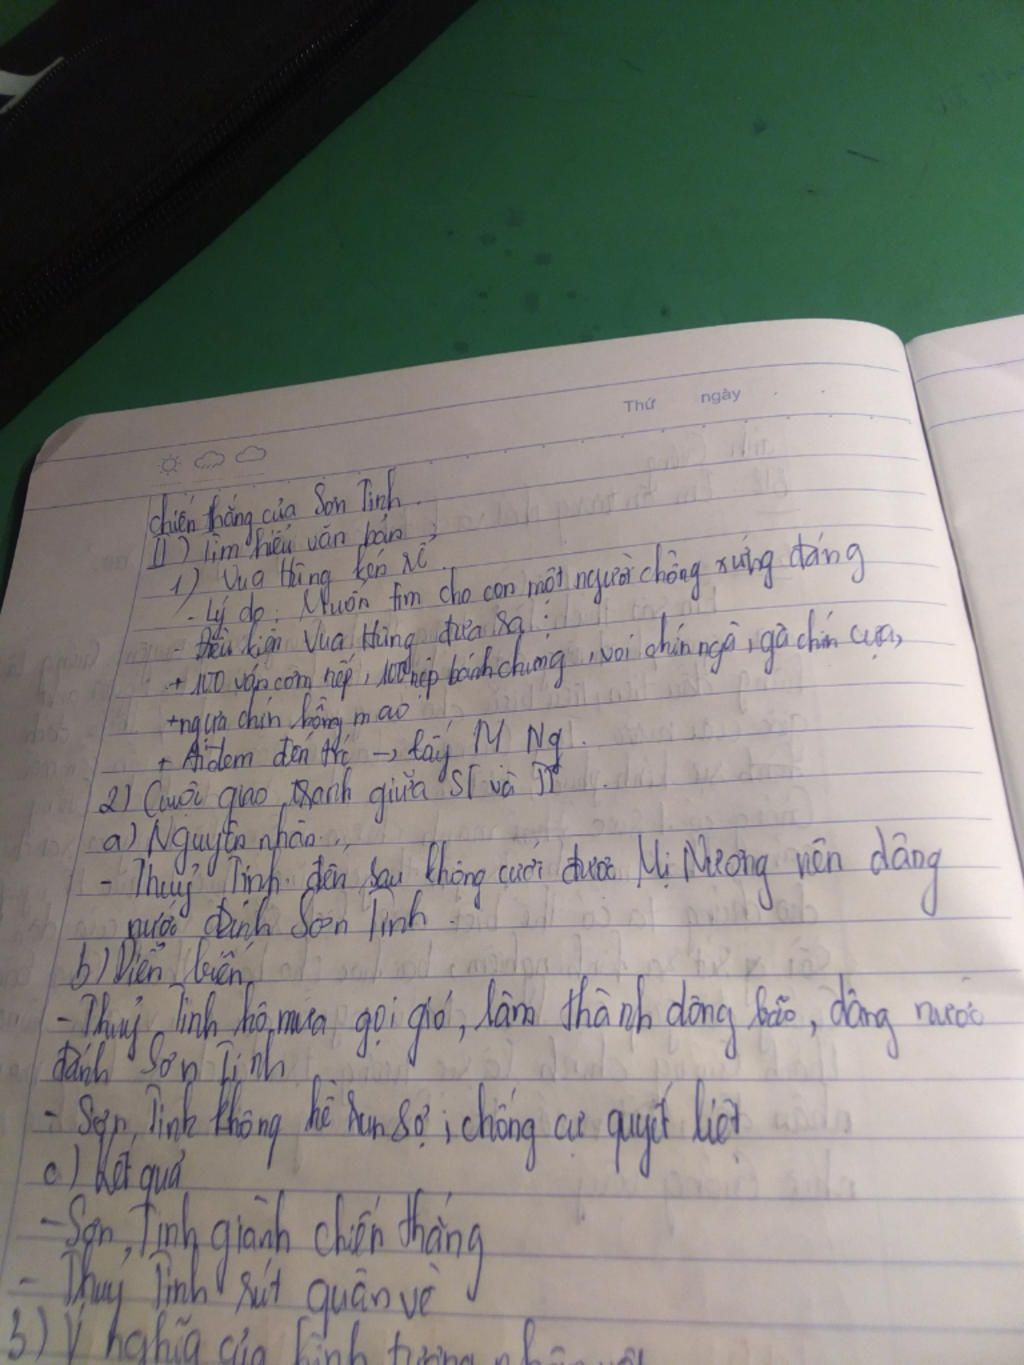 Thứ ngày
chiến thắng của Sơn Tinh.
II) Tìm hiểu văn bản;
1) Vua Hùng kén rể.
- Lý do: Muốn tìm cho con một người chồng xứng đáng
- Điều kiện Vua Hùng đưa ra:
+ 100 ván cơm nếp, 100 nệp bánh chưng, voi chín ngà, gà chín cựa,
+ ngựa chín hồng mao
+ Ai đem đến trc → lấy M Ng.
2) Cuộc giao tranh giữa ST và TT.
a) Nguyên nhân
- Thuỷ Tinh đến sau không cưới được Mị Nương nên dâng
nước đánh Sơn Tinh.
b) Diễn biến
- Thuỷ Tinh hô mưa gọi gió, làm thành dông bão, dâng nước
đánh Sơn Tinh
- Sơn Tinh không hề run sợ, chống cự quyết liệt
c) Kết quả
- Sơn Tinh giành chiến thắng
- Thuỷ Tinh rút quân về
3) Ý nghĩa của hình tượng nhân vật